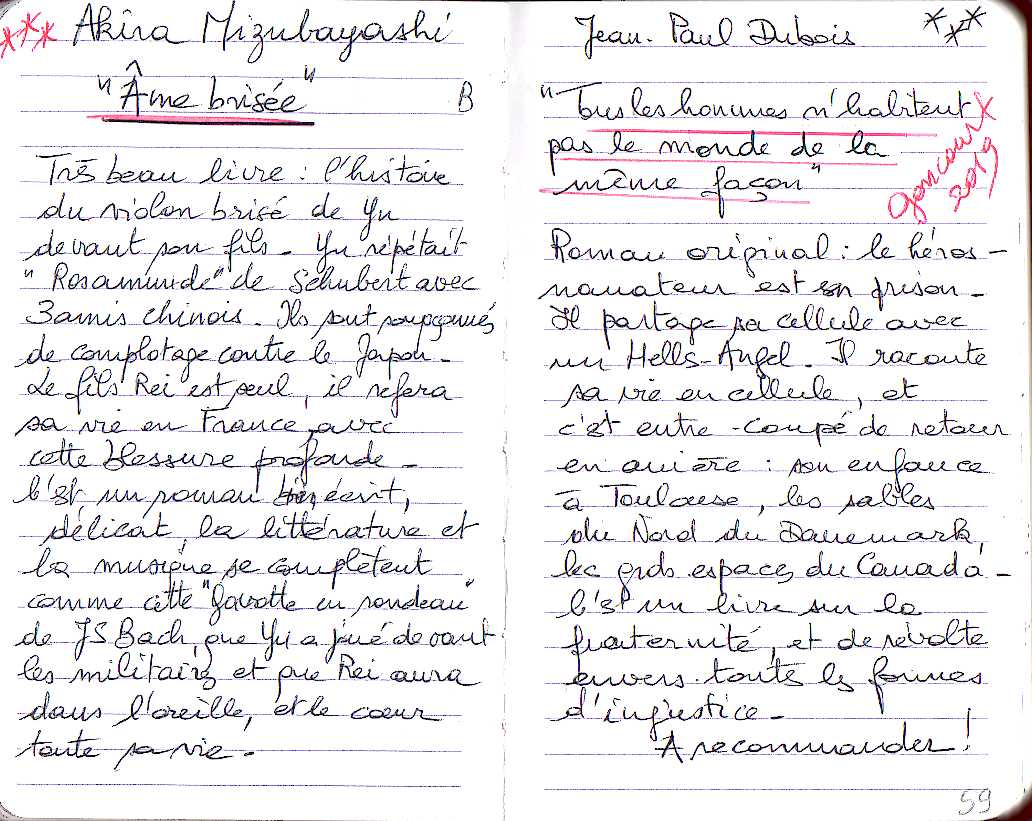 *** Akira Mizubayashi
"Âme brisée" B
Très beau livre : l'histoire
du violon brisé de Yu
devant son fils - Yu répétait
"Rosamunde" de Schubert avec
3 amis chinois. Ils sont soupçonnés
de complotage contre le Japon -
Le fils Rei est seul, il refera
sa vie en France avec
cette blessure profonde -
C'est un roman bien écrit,
délicat, la littérature et
la musique se complètent
comme cette "Gavotte en rondeau"
de JS Bach, que Yu a joué devant
les militaires et que Rei aura
dans l'oreille, et le cœur
toute sa vie -
Jean-Paul Dubois ***
"Tous les hommes n'habitent
pas le monde de la
même façon"
goncourt
2019
Roman original : le héros -
narrateur est en prison -
Il partage sa cellule avec
un Hells-Angel. Il raconte
sa vie en cellule, et
c'est entre-coupé de retour
en arrière : son enfance
à Toulouse, les sables
du Nord du Danemark,
les grds espaces du Canada -
C'est un livre sur la
fraternité, et de révolte
envers toute les formes
d'injustice -
A recommander !
59